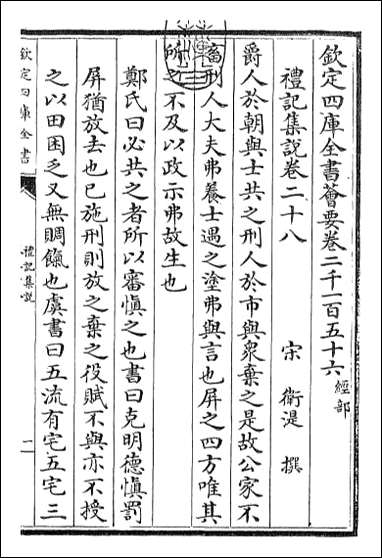 欽定四庫全書薈要卷二千一百五十六經部
禮記集說卷二十八
宋 衛湜 撰
爵人於朝與士共之刑人於市與衆棄之是故公家不
畜刑人大夫弗養士遇之塗弗與言也屏之四方唯其
所之不及以政示弗故生也
鄭氏曰必共之者所以審慎之也書曰克明德慎罰
屏猶放去也已施刑則放之棄之役賦不與亦不授
之以田困乏又無賙餼也虞書曰五流有宅五宅三
欽定四庫全書
禮記集說
一